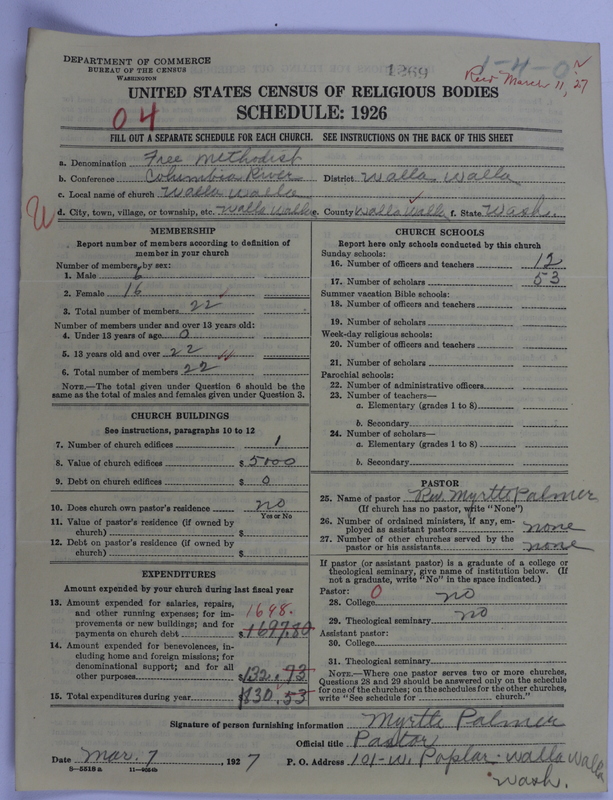 DEPARTMENT OF COMMERCE
BUREAU OF THE CENSUS
WASHINGTON
1269
1-4-0
Rew March 11, 27
UNITED STATES CENSUS OF RELIGIOUS BODIES
SCHEDULE: 1926
04
FILL OUT A SEPARATE SCHEDULE FOR EACH CHURCH. SEE INSTRUCTIONS ON THE BACK OF THIS SHEET
a. Denomination Free Methodist
b. Conference Columbia River District Walla Walla
c. Local name of church Walla Walla
d. City, town, village, or township, etc. Walla Walla e. County Walla Walla f. State Wash.
MEMBERSHIP
Report number of members according to definition of
member in your church
Number of members, by sex:
1. Male 6
2. Female 16
3. Total number of members 22
Number of members under and over 13 years old:
4. Under 13 years of age 0
5. 13 years old and over 22
6. Total number of members 22
NOTE.—The total given under Question 6 should be the
same as the total of males and females given under Question 3.
CHURCH BUILDINGS
See instructions, paragraphs 10 to 12
7. Number of church edifices 1
8. Value of church edifices $ 5000
9. Debt on church edifices $ 0
10. Does church own pastor's residence no
Yes or No
11. Value of pastor's residence (if owned by
church) $
12. Debt on pastor's residence (if owned by
church) $
EXPENDITURES
Amount expended by your church during last fiscal year
13. Amount expended for salaries, repairs,
and other running expenses; for im-
provements or new buildings; and for
payments on church debt $ 1697.80
1698.
14. Amount expended for benevolences, in-
cluding home and foreign missions; for
denominational support; and for all
other purposes $ 132.73
15. Total expenditures during year $ 1830.53
CHURCH SCHOOLS
Report here only schools conducted by this church
Sunday schools:
16. Number of officers and teachers 12
17. Number of scholars 53
Summer vacation Bible schools:
18. Number of officers and teachers
19. Number of scholars
Week-day religious schools:
20. Number of officers and teachers
21. Number of scholars
Parochial schools:
22. Number of administrative officers
23. Number of teachers—
a. Elementary (grades 1 to 8)
b. Secondary
24. Number of scholars—
a. Elementary (grades 1 to 8)
b. Secondary
PASTOR
25. Name of pastor Rev. Myrtle Palmer
(If church has no pastor, write "None")
26. Number of ordained ministers, if any, em-
ployed as assistant pastors none
27. Number of other churches served by the
pastor or his assistants none
If pastor (or assistant pastor) is a graduate of a college or
theological seminary, give name of institution below. (If
not a graduate, write "No" in the space indicated.)
Pastor: 0
28. College no
29. Theological seminary no
Assistant pastor:
30. College
31. Theological seminary
NOTE.—Where one pastor serves two or more churches,
Questions 28 and 29 should be answered only on the schedule
for one of the churches; on the schedules for the other churches,
write "See schedule for church."
Signature of person furnishing information Myrtle Palmer
Official title Pastor
Date Mar. 7, 1927 P. O. Address 101-W. Poplar-Walla Walla
Wash.
8-5518 a